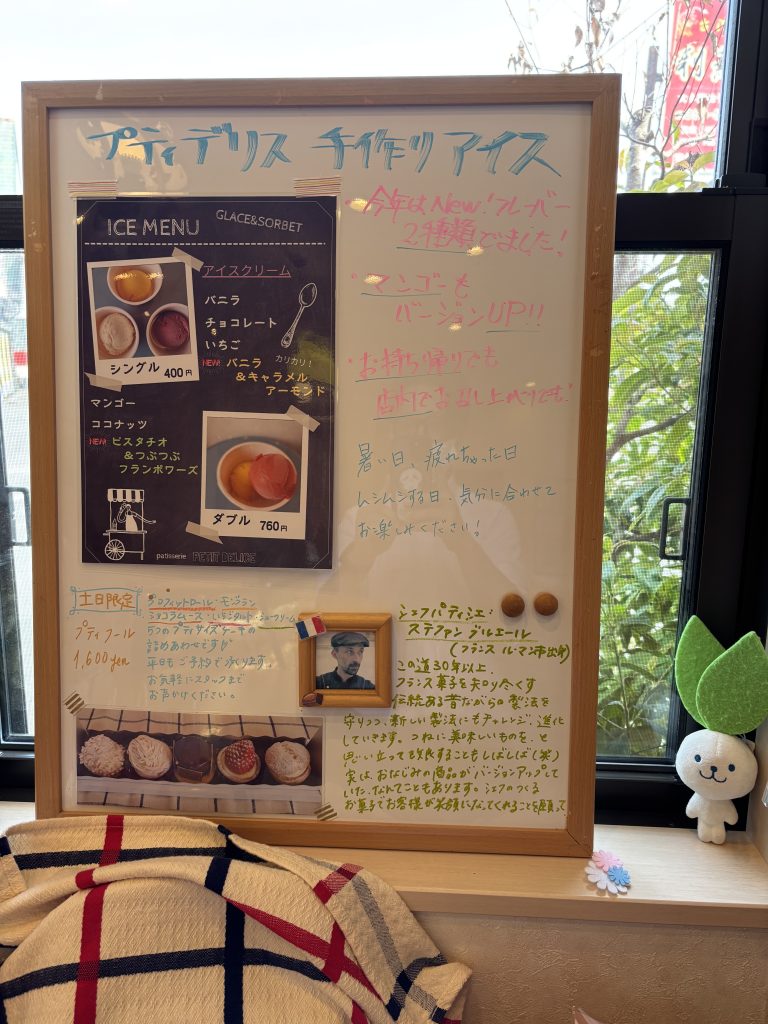 プティデリス 手作りアイス
ICE MENU
GLACE&SORBET
アイスクリーム
バニラ
チョコレート
&
いちご
NEW! バニラ カリカリ!
&キャラメル
アーモンド
シングル 400円
マンゴー
ココナッツ
NEW! ピスタチオ
&つぶつぶ
フランボワーズ
ダブル 760円
patisserie PETIT DELICE
・今年はNew!フレーバー
2種類でました!
・マンゴーも
バージョンUP!!
・お持ち帰りでも
店内でお召し上がりでも!
暑い日、疲れちゃった日
ムシムシする日、気分に合わせて
お楽しみください!
土日限定
プティフール
1,600yen
プロフィットロール・モンブラン
ショコラムース・いちごタルト・シュークリーム
5つのプティサイズケーキの
詰めあわせですが
平日もご予約で承ります。
お気軽にスタッフまで
お声かけください。
シェフパティシエ:
ステファン ブルエール
(フランス ル・マン市出身)
この道30年以上、
フランス菓子を知り尽くす
伝統ある昔ながらの製法を
守りつつ、新しい製法にもチャレンジ、進化
していきます。つねに美味しいものを、と
思い立っても改良することもしばしば(笑)
実は、おなじみの商品がバージョンアップして
いた、なんてこともあります。シェフのつくる
お菓子でお客様が笑顔になってくれることを願って